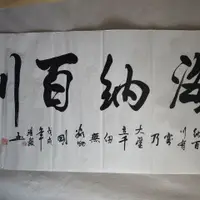 海纳百川
纳百川有容乃大壁立千仞無欲則剛